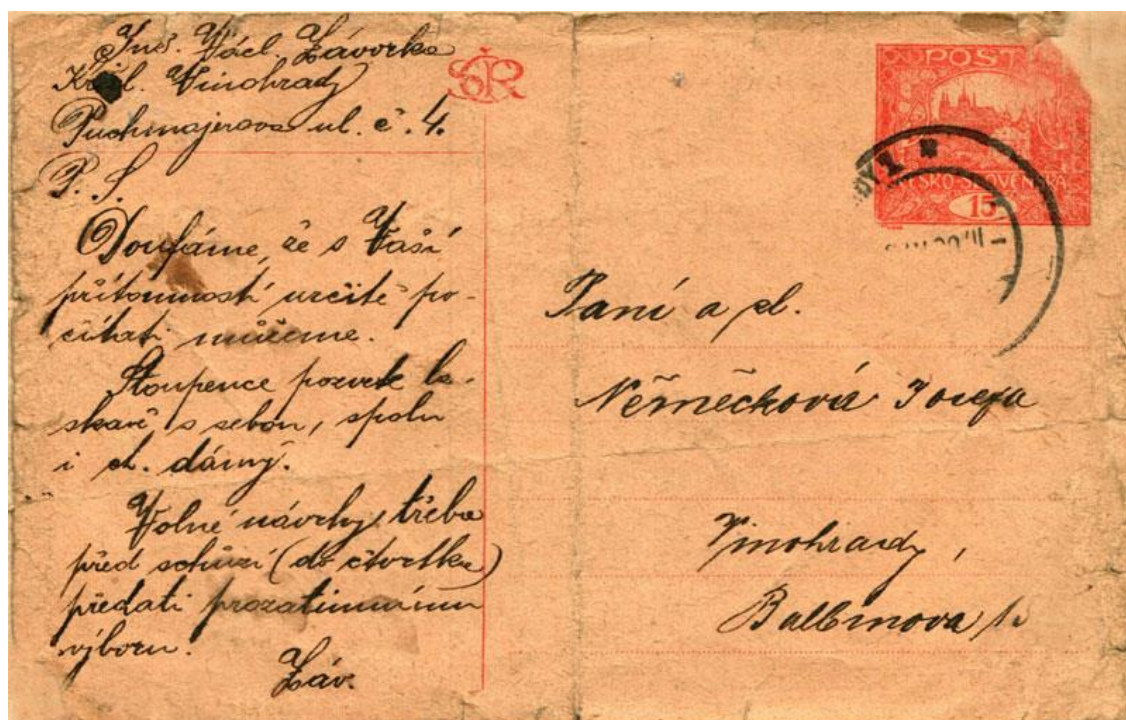 Inž. Václ. Závorka
Král. Vinohrady
Puchmajerova ul. č. 4.
P. S.
Doufáme, že s Vaší
přítomností určitě po-
čítati můžeme.
Stoupence pozvete la-
skavě s sebou, spolu
i ct. dámy.
Volné návrhy třeba
před schůzí (do čtvrtka)
předati prozatimnímu
výboru.
Záv.
ČSR
POSTA
ČESKO-SLOVENSKÁ
15
Paní a sl.
Němečková Josefa
Vinohrady,
Balbínova